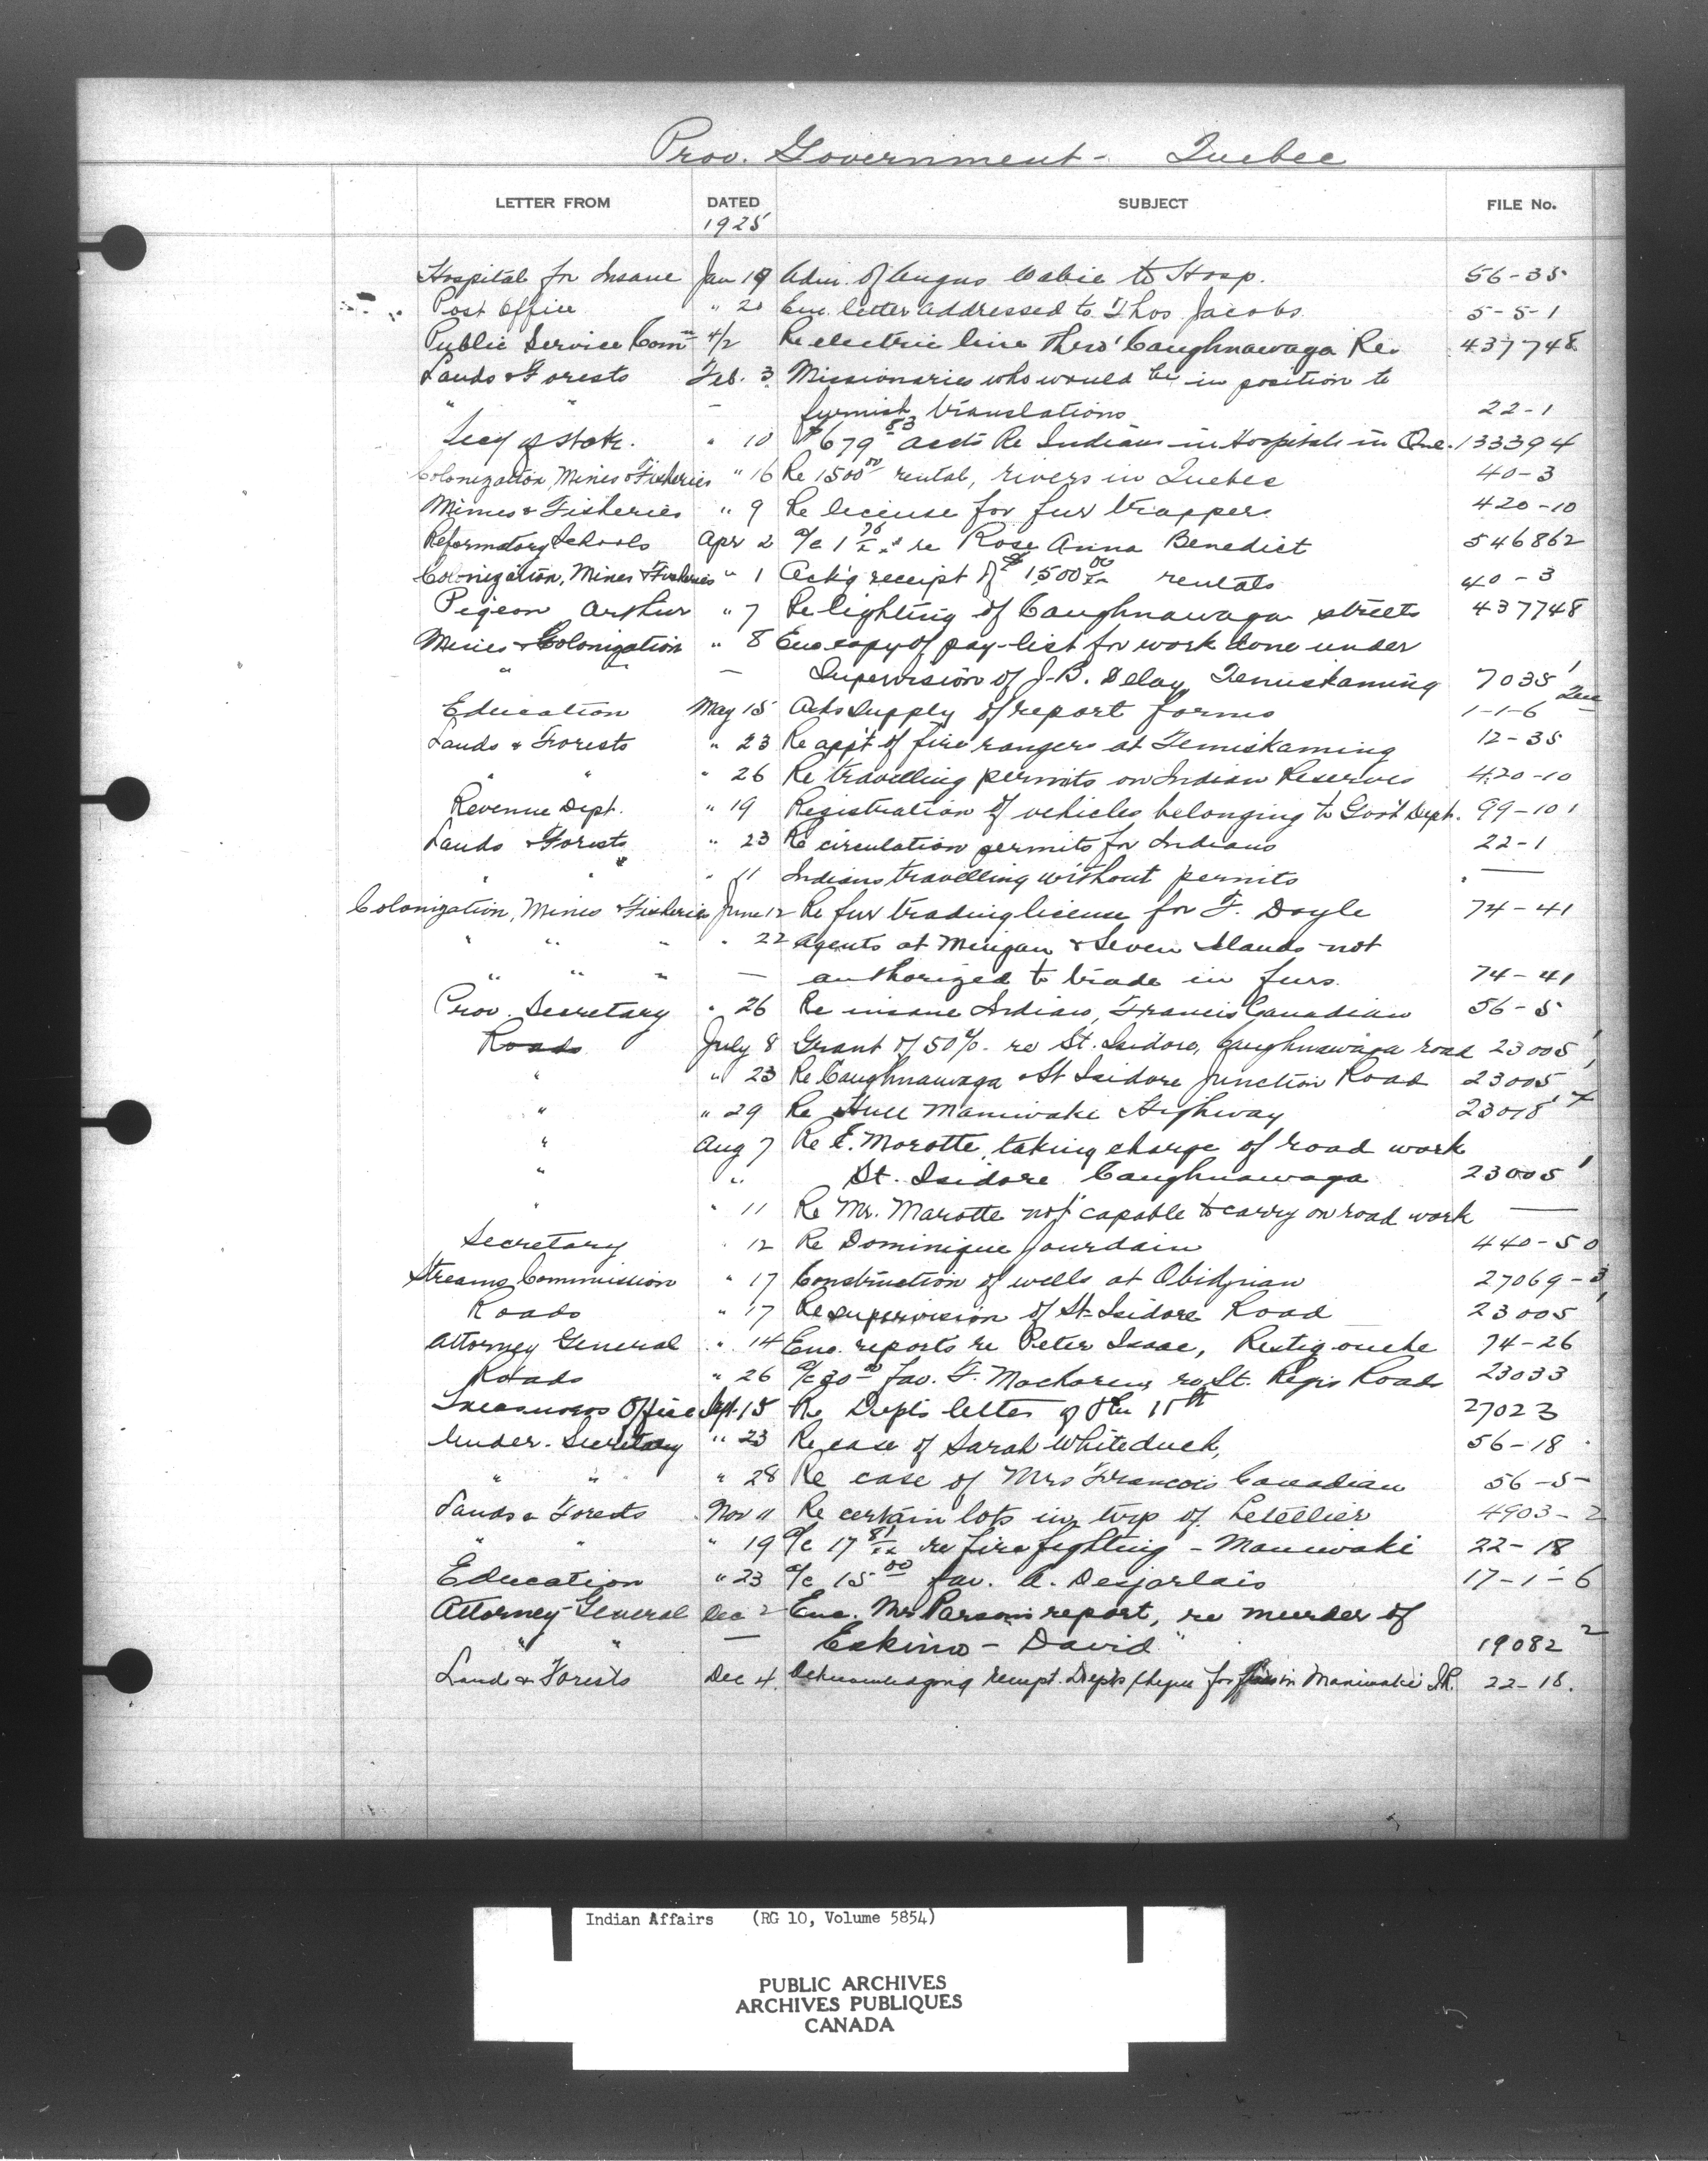 Prov. Government - Quebec
LETTER FROM DATED SUBJECT FILE No.
1925
Hospital for Insane Jan 19 Adm. of Angus Wabie to Hosp. 56-35
Post Office " 20 Enc. letter addressed to Thos Jacobs 5-5-1
Public Service Com 4/2 Re electric line thro' Caughnawaga Re. 437748
Lands & Forests Feb. 3 Missionaries who would be in position to
" " — furnish translations 22-1
Secy of State. " 10 $679 83 accts Re Indians in Hospitals in Que. 133394
Colonization, Mines & Fisheries " 16 Re 1500 00 rental, rivers in Quebec 40-3
Mines & Fisheries " 9 Re license for fur trappers 420-10
Reformatory Schools Apr 2 a/c 1 75 re Rose Anna Benedict 546862
Colonization, Mines & Fisheries " 1 Ack'g receipt of $1,500 00 rentals 40-3
Pigeon Arthur " 7 Re lighting of Caughnawaga streets 437748
Mines & Colonization " 8 Enc copy of pay-list for work done under
" " — Supervision of J.B. Delay, Temiskaming 7035 1
Education May 15 Acks supply of report forms 1-1-6 Que
Lands & Forests " 23 Re app't of fire rangers at Temiskaming 12-35
" " " 26 Re travelling permits on Indian Reserves 420-10
Revenue Dept. " 19 Registration of vehicles belonging to Gov't Dept. 99-101
Lands & Forests " 23 Re circulation permits for Indians 22-1
" " " 11 Indians travelling without permits " —
Colonization, Mines & Fisheries June 12 Re fur trading license for F. Doyle 74-41
" " " " 22 Agents at Mingan & Seven Islands not
" " " — authorized to trade in furs. 74-41
Prov. Secretary " 26 Re insane Indian, Francis Canadian 56-5
Roads July 8 Grant of 50%. re St. Isidore, Caughnawaga road 23005 1
" " 23 Re Caughnawaga & St Isidore Junction Road 23005 1
" " 29 Re Hull Maniwaki Highway 23018
" Aug 7 Re E. Marotte, taking charge of road work
" " St. Isidore Caughnawaga 23005 1
" " 11 Re Mr. Marotte not capable to carry on road work —
Secretary " 12 Re Dominique Jourdain 440-50
Streams Commission " 17 Construction of wells at Obidjuan 27069-3
Roads " 17 Re supervision of St-Isidore Road 23005 1
Attorney General " 14 Enc. reports re Peter Isaac, Restigouche 74-26
Roads " 26 a/c 30 00 fav. F. re St. Regis Roads 23033
Treasurers Office Sept. 15 Re Dept's letter of the 11th 27023
Under-Secretary " 23 Re case of Sarah Whiteduck, 56-18
" " " 28 Re case of Mrs Francois Canadian 56-5-
Lands & Forests Nov 11 Re certain lots in twp of Letellier 4903-2
" " " 19 a/c 17 81 re fire fighting - Maniwaki 22-18
Education " 23 a/c 15 00 fav. A. Desjarlais 17-1-6
Attorney-General Dec 2 Enc. Mr Parsons report, re murder of
" " — Eskimo - David" 19082 2
Land & Forests Dec 4. Acknowledging receipt Dept's cheque for fires in Maniwaki I.R. 22-18.
Indian Affairs (RG 10, Volume 5854)
PUBLIC ARCHIVES
ARCHIVES PUBLIQUES
CANADA